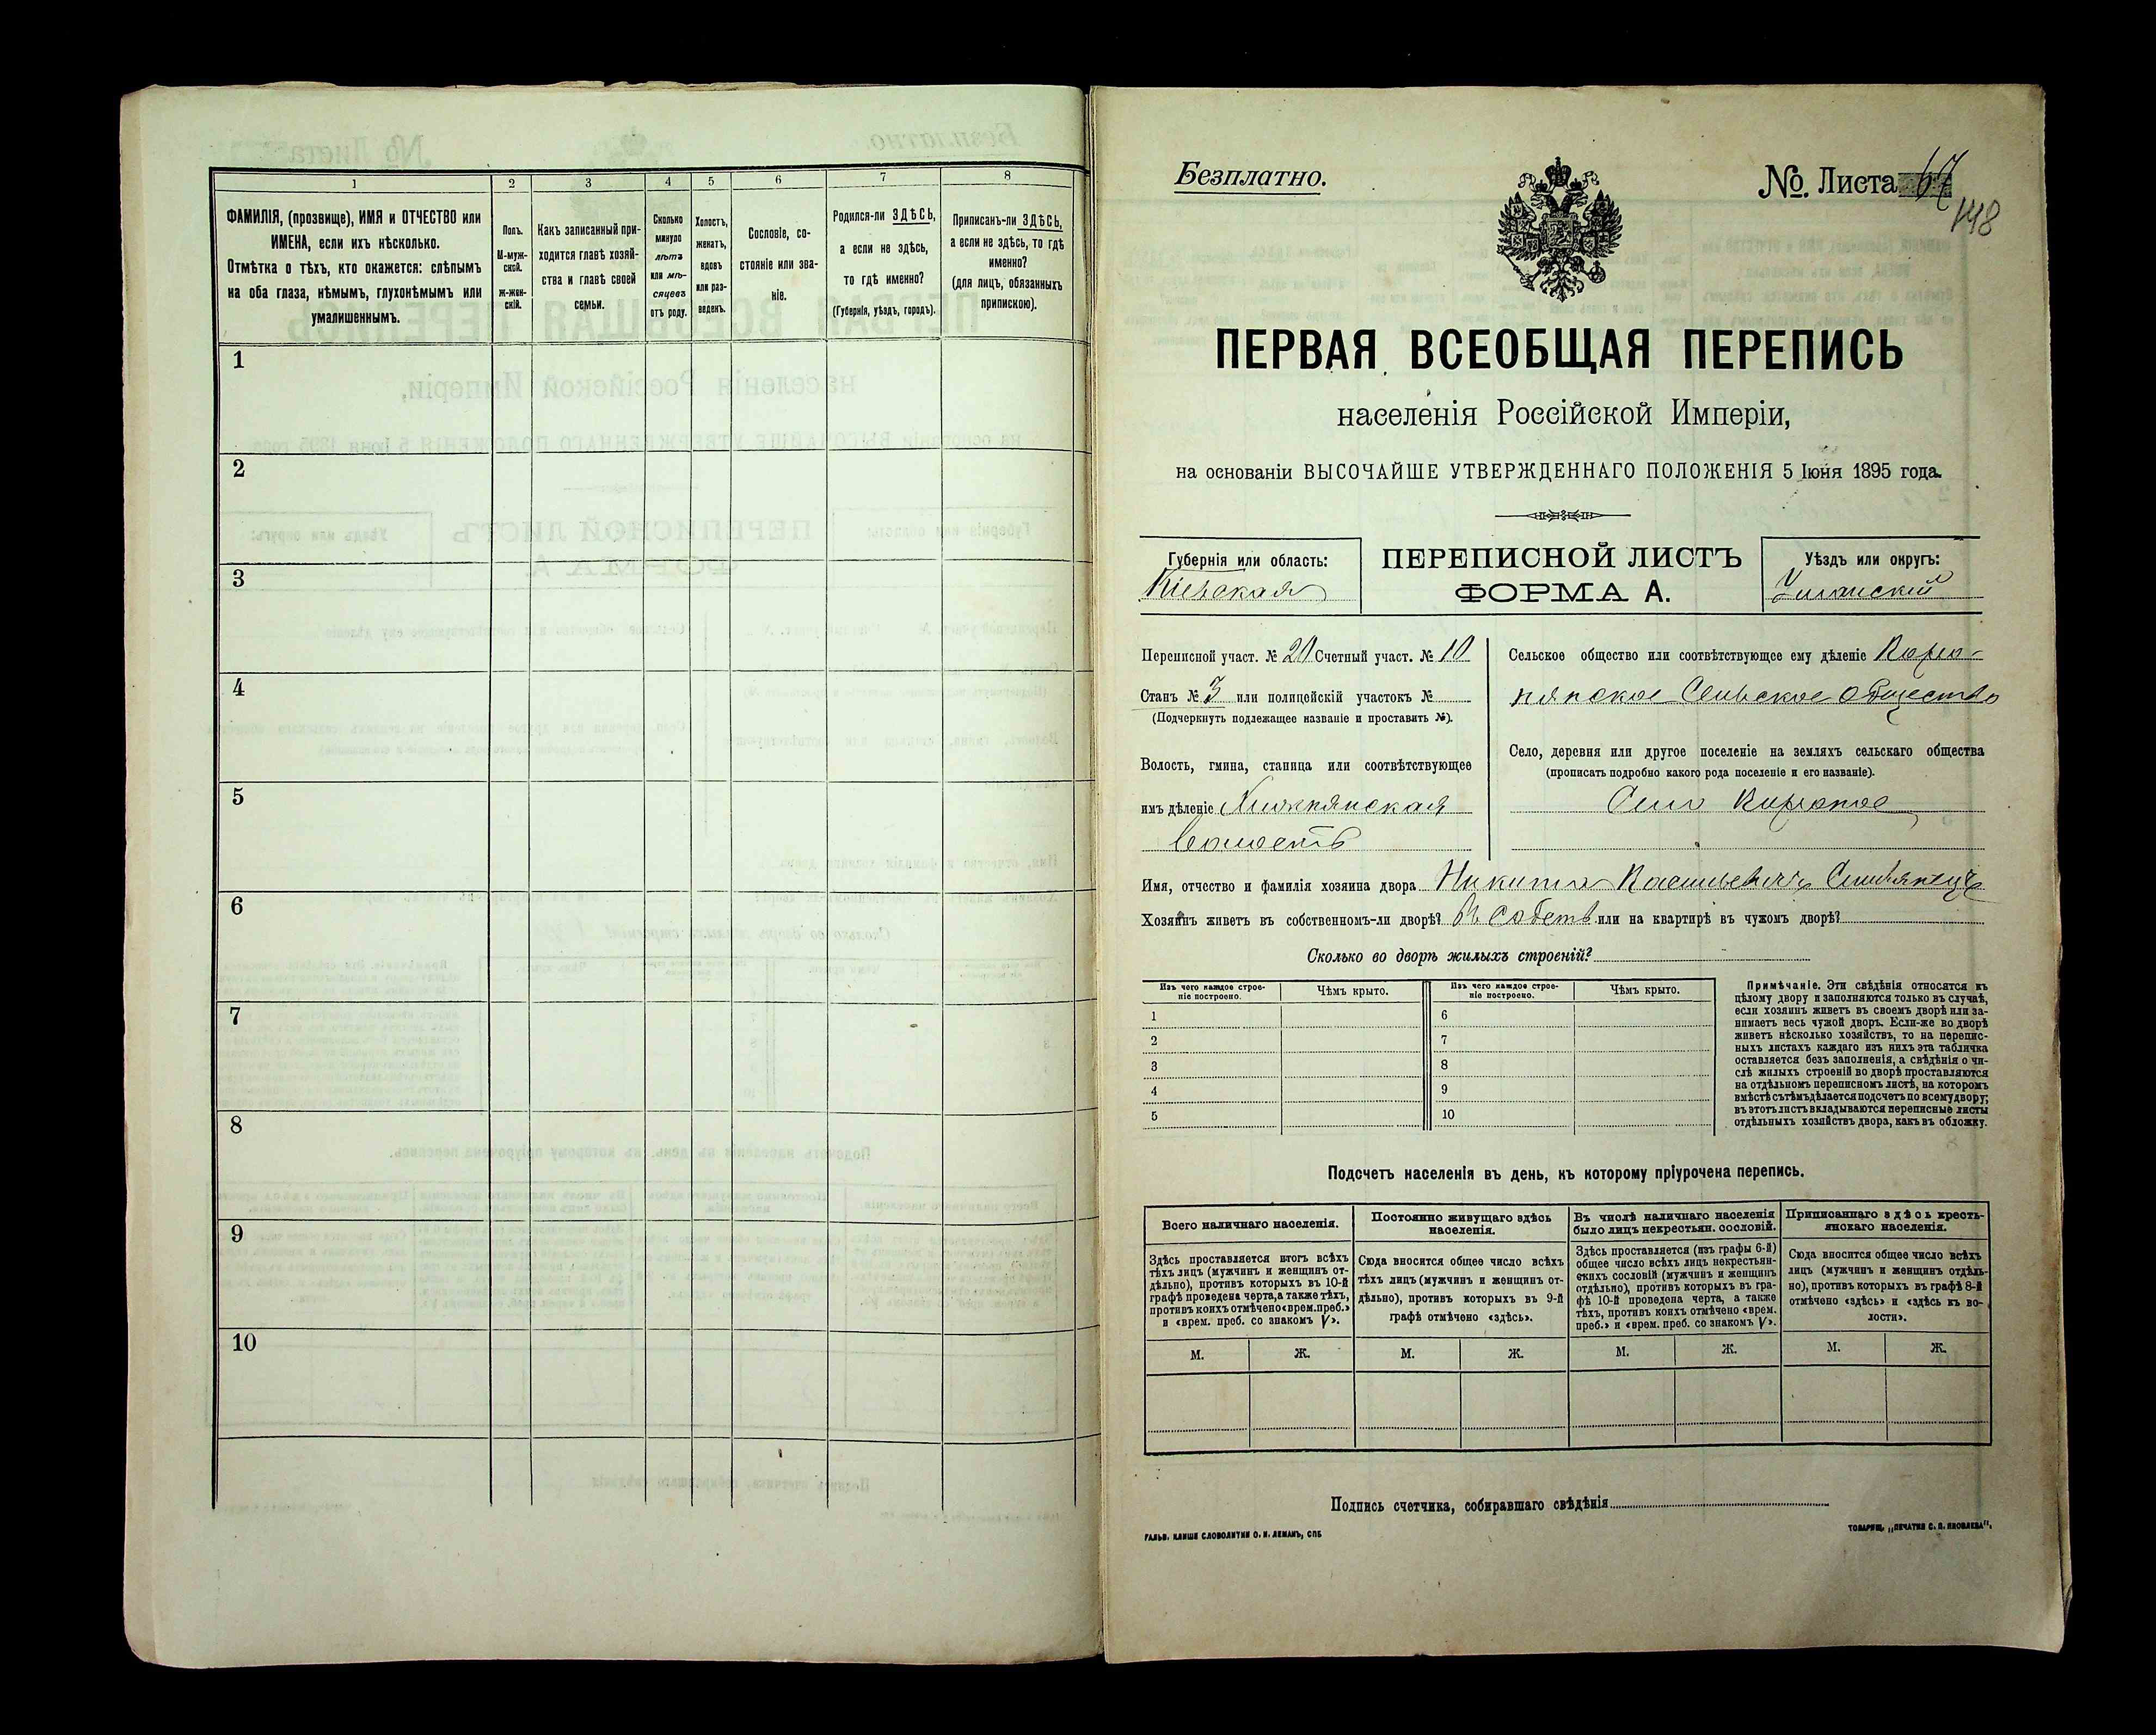 1
2
3
4
5
6
7
8
ФАМИЛІЯ, (прозвище), ИМЯ и ОТЧЕСТВО или
ИМЕНА, если ихъ нѣсколько.
Отмѣтка о тѣхъ, кто окажется: слѣпымъ
на оба глаза, нѣмымъ, глухонѣмымъ или
умалишеннымъ.
Полъ.
М-муж-
ской.
ж-жен-
скій.
Какъ записанный при-
ходится главѣ хозяй-
ства и главѣ своей
семьи.
Сколько
минуло
лѣтъ
или мѣ-
сяцевъ
отъ роду.
Холостъ,
женатъ,
вдовъ
или раз-
веденъ.
Сословіе, со-
стояніе или зва-
ніе.
Родился-ли ЗДѢСЬ,
а если не здѣсь,
то гдѣ именно?
(Губернія, уѣздъ, городъ).
Приписанъ-ли ЗДѢСЬ,
а если не здѣсь, то гдѣ
именно?
(для лицъ, обязанныхъ
припискою).
1
2
3
4
5
6
7
8
9
10
Безплатно.
№. Листа 67
148
ПЕРВАЯ ВСЕОБЩАЯ ПЕРЕПИСЬ
населенія Россійской Имперіи,
на основаніи ВЫСОЧАЙШЕ УТВЕРЖДЕННАГО ПОЛОЖЕНІЯ 5 Іюня 1895 года.
Губернія или область:
Кіевская
ПЕРЕПИСНОЙ ЛИСТЪ
ФОРМА А.
Уѣздъ или округъ:
Уманскій
Переписной участ. № 20 Счетный участ. № 10
Станъ № 3 или полицейскій участокъ №
(Подчеркнуть подлежащее названіе и проставить №).
Волость, гмина, станица или соотвѣтствующее
имъ дѣленіе
волость
Сельское общество или соотвѣтствующее ему дѣленіе
Сельское общество
Село, деревня или другое поселеніе на земляхъ сельскаго общества
(прописать подробно какого рода поселеніе и его названіе).
Село
Имя, отчество и фамилія хозяина двора Никита Васильевичъ
Хозяинъ живетъ въ собственномъ-ли дворѣ? Въ собств. или на квартирѣ въ чужомъ дворѣ?
Сколько во дворѣ жилыхъ строеній?
Изъ чего каждое строе-
ніе построено.
Чѣмъ крыто.
Изъ чего каждое строе-
ніе построено.
Чѣмъ крыто.
1
2
3
4
5
6
7
8
9
10
Примѣчаніе. Эти свѣдѣнія относятся къ
цѣлому двору и заполняются только въ случаѣ,
если хозяинъ живетъ въ своемъ дворѣ или за-
нимаетъ весь чужой дворъ. Если-же во дворѣ
живетъ нѣсколько хозяйствъ, то на перепис-
ныхъ листахъ каждаго изъ нихъ эта табличка
оставляется безъ заполненія, а свѣдѣнія о чи-
слѣ жилыхъ строеній во дворѣ проставляются
на отдѣльномъ переписномъ листѣ, на которомъ
вмѣстѣ съ тѣмъ дѣлается подсчетъ по всему двору;
въ этотъ листъ вкладываются переписные листы
отдѣльныхъ хозяйствъ двора, какъ въ обложку.
Подсчетъ населенія въ день, къ которому пріурочена перепись.
Всего наличнаго населенія.
Постоянно живущаго здѣсь
населенія.
Въ числѣ наличнаго населенія
было лицъ некрестьян. сословій.
Приписаннаго здѣсь кресть-
янскаго населенія.
Здѣсь проставляется итогъ всѣхъ
тѣхъ лицъ (мужчинъ и женщинъ от-
дѣльно), противъ которыхъ въ 10-й
графѣ проведена черта, а также тѣхъ,
противъ коихъ отмѣчено «врем. преб.»
и «врем. преб. со знакомъ V».
Сюда вносится общее число всѣхъ
тѣхъ лицъ (мужчинъ и женщинъ от-
дѣльно), противъ которыхъ въ 9-й
графѣ отмѣчено «здѣсь».
Здѣсь проставляется (изъ графы 6-й)
общее число всѣхъ лицъ некрестьян-
скихъ сословій (мужчинъ и женщинъ
отдѣльно), противъ которыхъ въ гра-
фѣ 10-й проведена черта, а также
тѣхъ, противъ коихъ отмѣчено «врем.
преб.» и «врем. преб. со знакомъ V».
Сюда вносится общее число всѣхъ
лицъ (мужчинъ и женщинъ отдѣль-
но), противъ которыхъ въ графѣ 8-й
отмѣчено «здѣсь» и «здѣсь къ во-
лости».
М.
Ж.
М.
Ж.
М.
Ж.
М.
Ж.
Подпись счетчика, собиравшаго свѣдѣнія
ГАЛЬВ. КЛИШЕ СЛОВОЛИТНИ О. И. ЛЕМАНЪ, СПБ
ТОВАРИЩ. „ПЕЧАТНЯ С. П. ЯКОВЛЕВА".